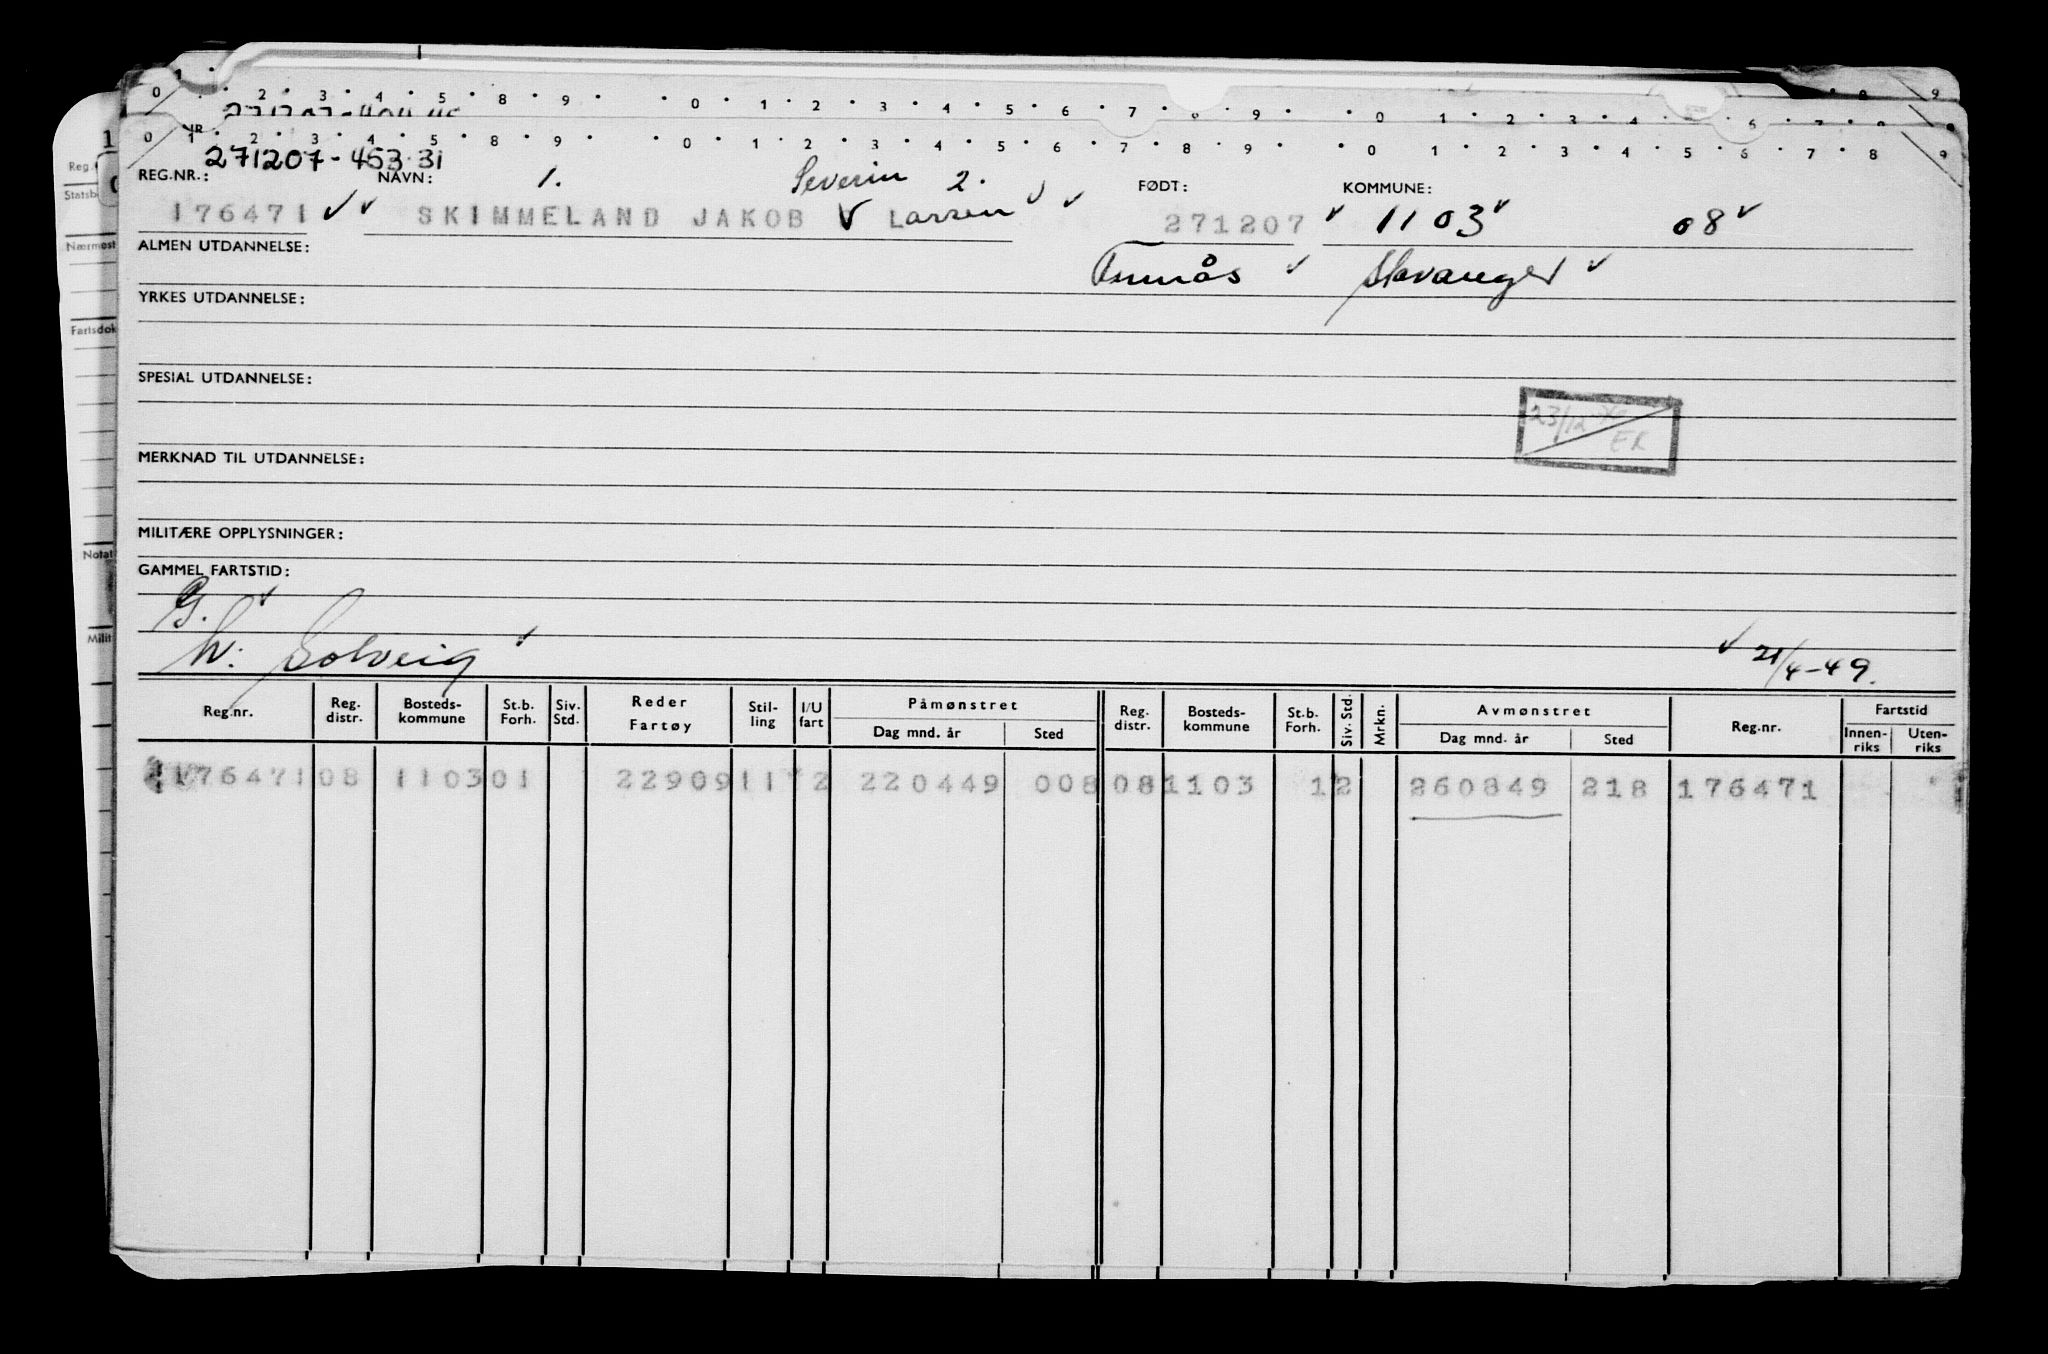 0 · · 2 · 3 · 4 · 5 · 8 · 9 · · 0 · 1 · 2 · 3 · 4 · 5 · 6 · 7 · 8 · 9 · · 0 · 1 · 2 · 3 · 4 · 6 · 7 · 8
271207-404 45
0 1 · 2 · 3 · 4 · 5 · 8 · 9 · · 0 · 1 · 2 · 3 · 4 · 5 · 6 · 7 · 8 · 9 · · 0 · 1 · 2 · 3 · 4 · 5 · 6 · 7 · 8 9
271207-453 31
REG.NR.: NAVN: 1. Severin 2. FØDT: KOMMUNE:
176471 SKIMMELAND JAKOB V Larsen 271207 1103 08
ALMEN UTDANNELSE: Stavanger
YRKES UTDANNELSE:
SPESIAL UTDANNELSE:
23/12
ER
MERKNAD TIL UTDANNELSE:
MILITÆRE OPPLYSNINGER:
GAMMEL FARTSTID:
G.
h: Solveig 21/4-49.
Reg.nr. Reg. distr. Bosteds-kommune St.b. Forh. Siv. Std. Reder Fartøy Stil-ling I/U fart Påmønstret Dag mnd. år Sted Reg. distr. Bosteds-kommune St.b. Forh. Siv. Std. Mrkn. Avmønstret Dag mnd. år Sted Reg.nr. Fartstid Innen-riks Uten-riks
176471 08 1103 01 22909 11 2 220449 008 08 1103 1 2 260849 218 176471
Reg.
Statsb
Nærmest
Fartsdok
Notat
Milit